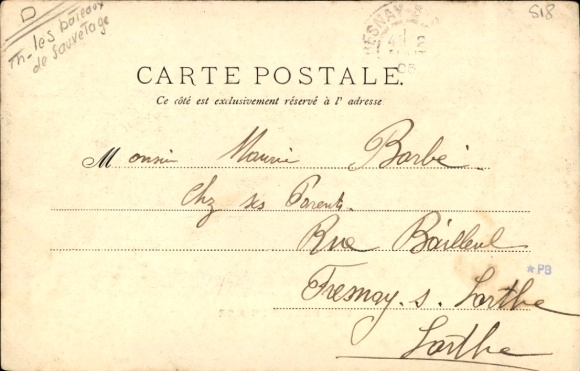 D
Th-les bateaux
de sauvetage
518
FRESNAY
03
CARTE POSTALE.
Ce côté est exclusivement réservé à l'adresse
Monsieur Maurice Barbé
Chez ses Parents.
Rue Bailleul
*PB
Fresnay. s. Sarthe
Sarthe